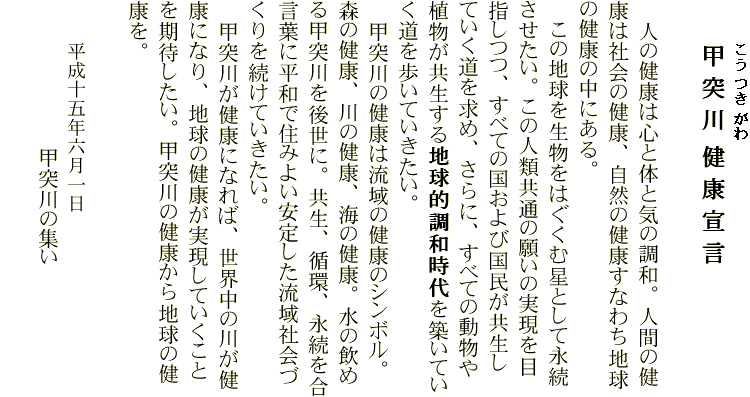 こうつきがわ
甲突川健康宣言
人の健康は心と体と気の調和。人間の健
康は社会の健康、自然の健康すなわち地球
の健康の中にある。
この地球を生物をはぐくむ星として永続
させたい。この人類共通の願いの実現を目
指しつつ、すべての国および国民が共生し
ていく道を求め、さらに、すべての動物や
植物が共生する地球的調和時代を築いてい
く道を歩いていきたい。
甲突川の健康は流域の健康のシンボル。
森の健康、川の健康、海の健康。水の飲め
る甲突川を後世に。共生、循環、永続を合
言葉に平和で住みよい安定した流域社会づ
くりを続けていきたい。
甲突川が健康になれば、世界中の川が健
康になり、地球の健康が実現していくこと
を期待したい。甲突川の健康から地球の健
康を。
平成十五年六月一日
甲突川の集い